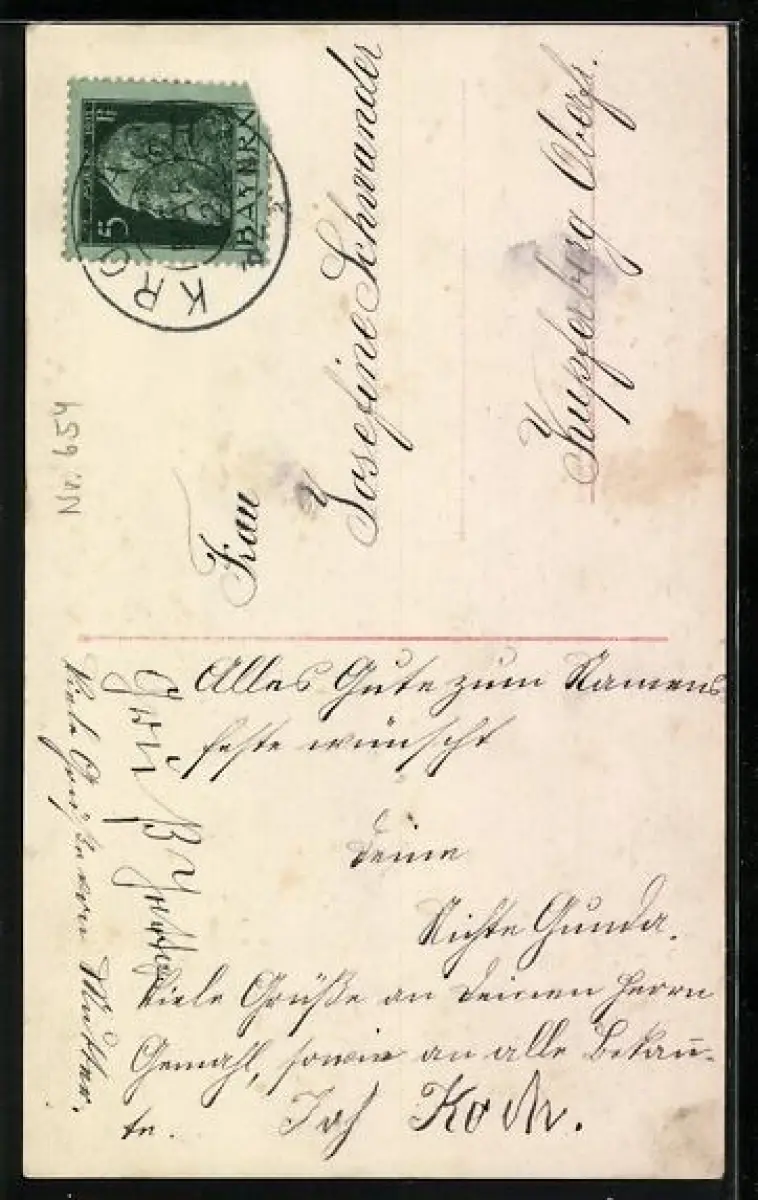 5 Pf
BAYERN
Nr. 654
Frau
Josefine Schwander
Kupferberg Oberfr.
Alles Gute zum Namens
feste wünscht
Deine
Nichte Gunda.
Viele Grüße an Deinen Herrn
Gemahl, sowie an alle Bekan̄-
te. Joh Koch.
Gruß
Viele Grüße von Mutter.